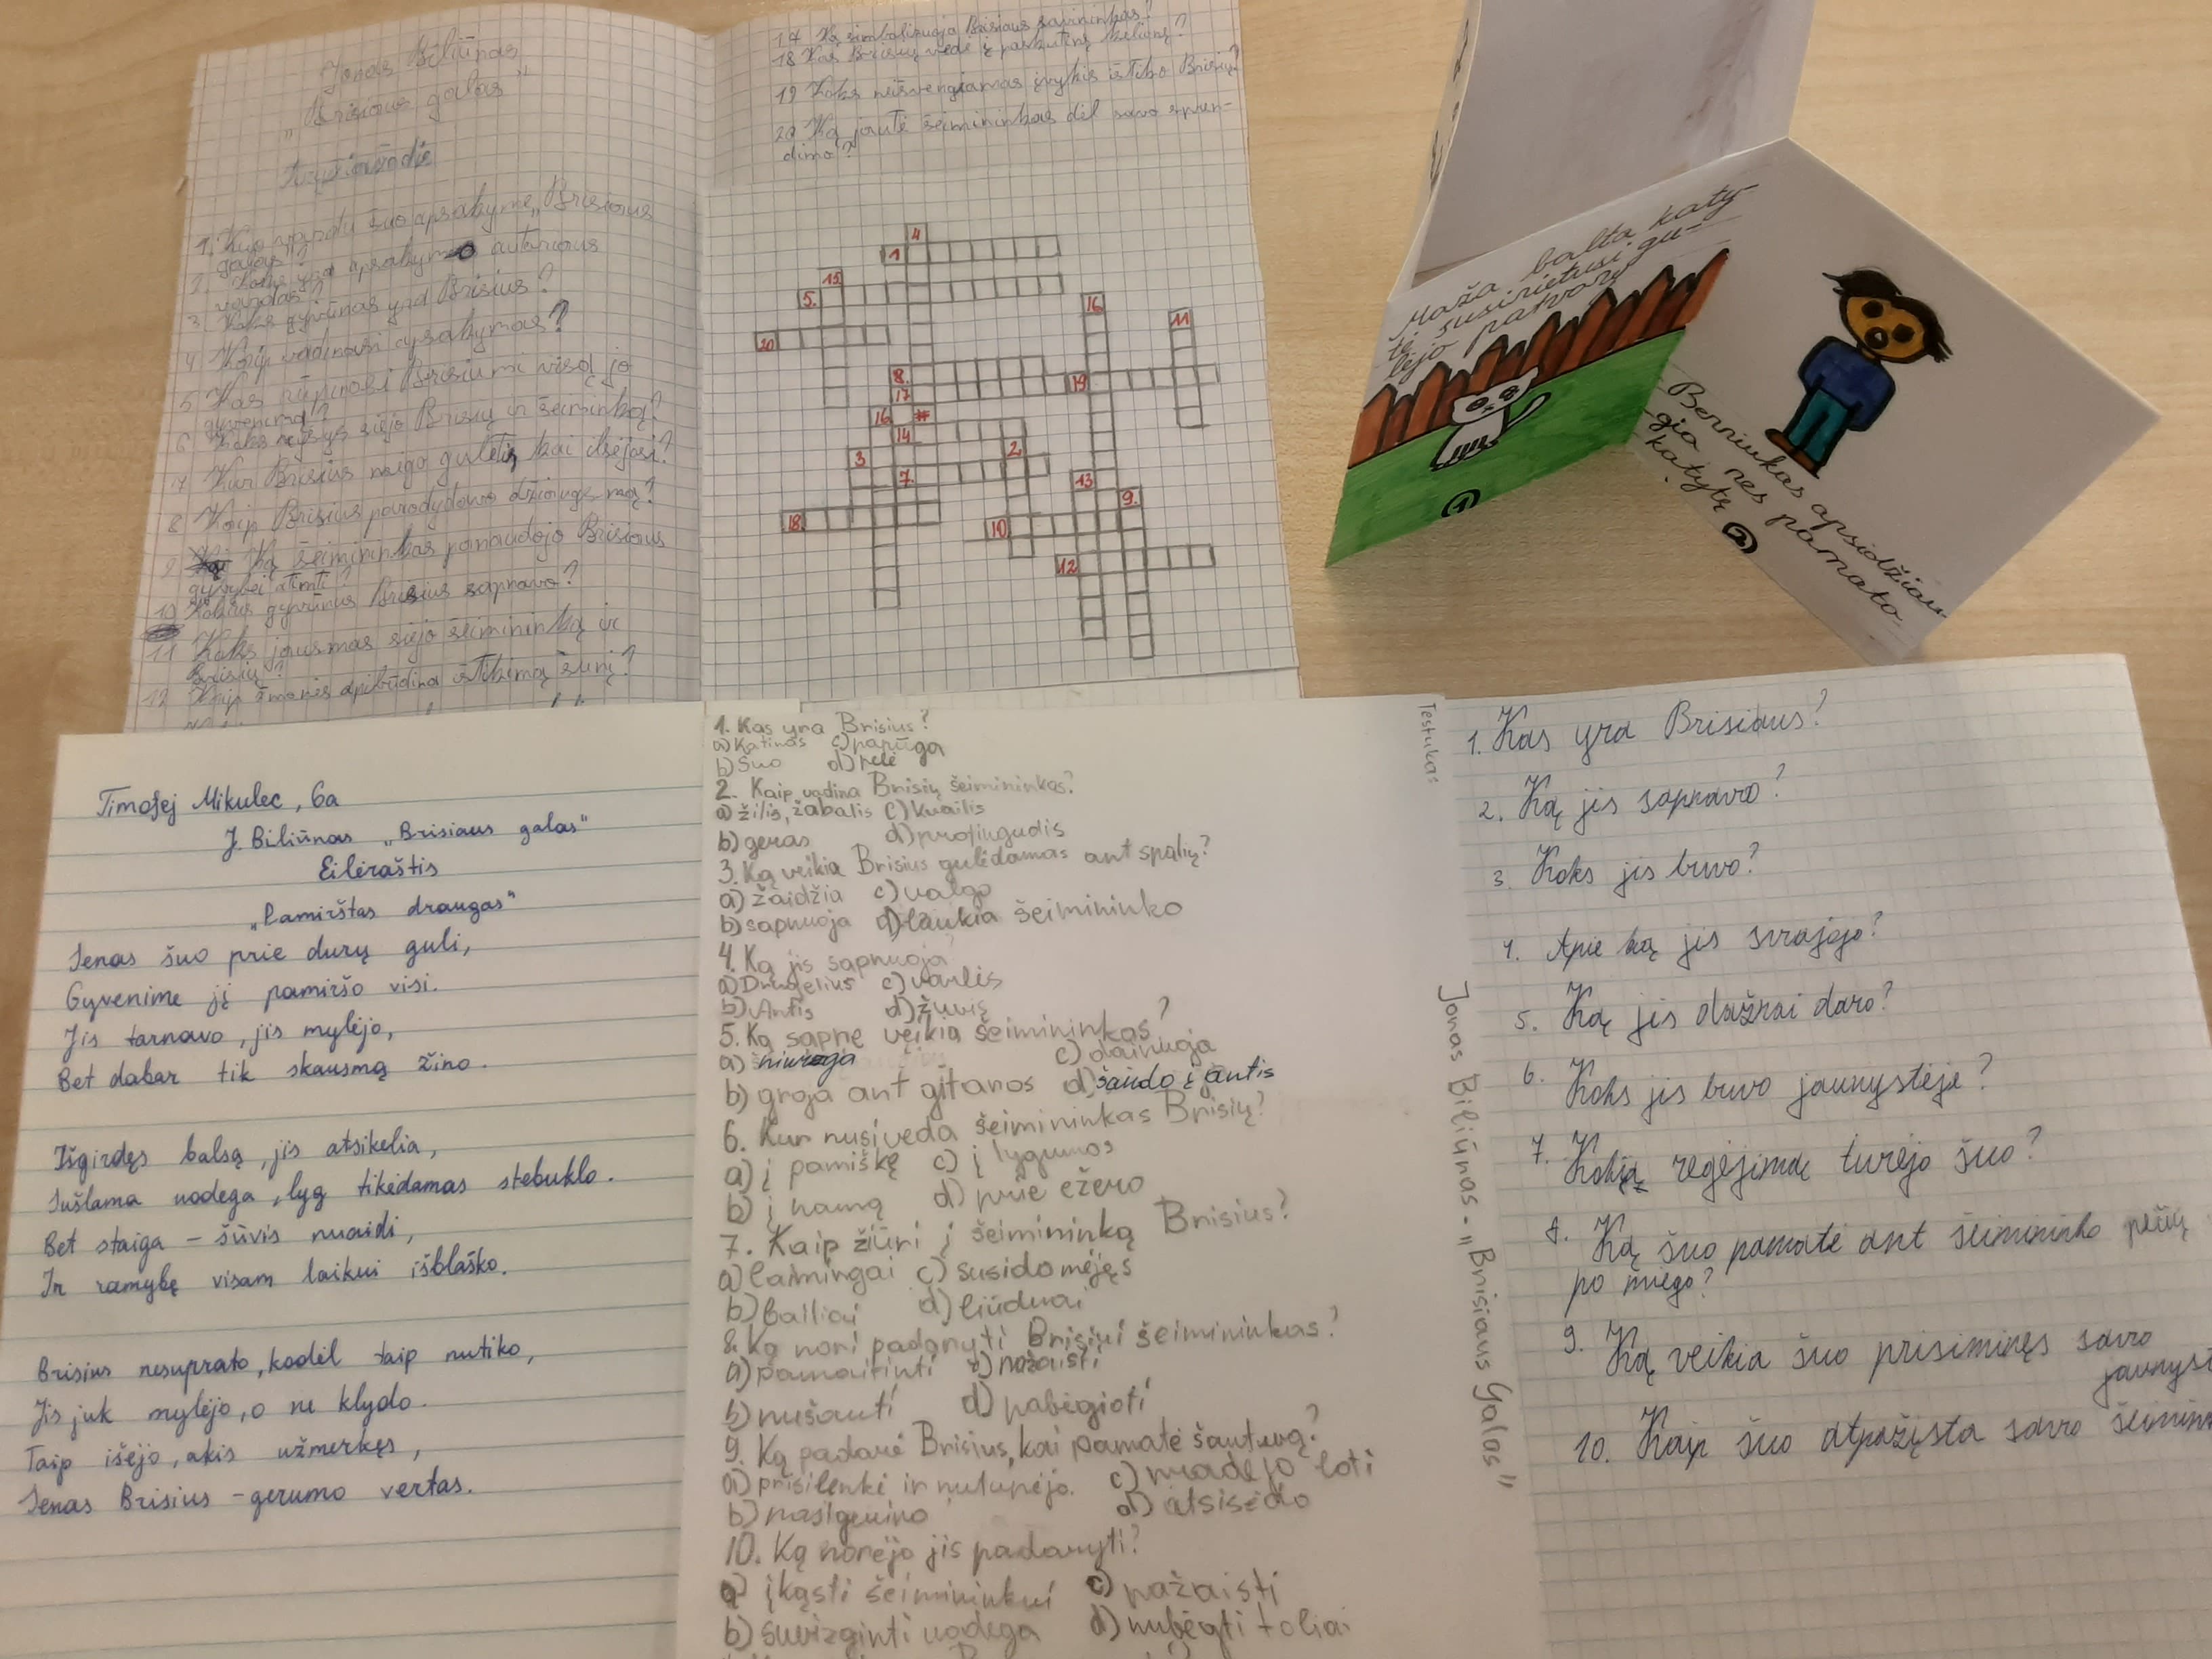 Jonas Biliūnas
„Brisiaus galas"
Kryžiažodis
1. Kuo vardu šuo apsakyme „Brisiaus
galas?
2. Koks yra apsakymo autoriaus
vardas?
3 Koks gyvūnas yra Brisius?
4 Kaip vadinasi apsakymas?
5 Kas rūpinosi Brisiumi visą jo
gyvenimą?
6 Koks ryšys siejo Brisių ir šeimininką?
7 Kur Brisius mėgo gulėti, kai ilsėjosi?
8 Kaip Brisius parodydavo džiaugsmą?
9 Ką šeimininkas panaudojo Brisiaus
gyvybei atimti?
10 Kokius gyvūnus Brisius sapnavo?
11 Koks jausmas siejo šeimininką ir
Brisių?
12 Kaip žmonės apibūdina ištikimą šunį?
17 Ką simbolizuoja Brisiaus savininkas?
18 Kas Brisių vedė į paskutinę kelionę?
19 Koks neišvengiamas įvykis ištiko Brisių?
20 Ką jautė šeimininkas dėl savo spren-
dimo?
4
1
15
5.
16
11
20
8.
19
17
16
14
3
2
7.
13
9.
18
10
12
Maža balta katy-
tė susirietusi gu-
lėjo patvory
1
Berniukas apsidžiau-
gia nes pamato
katytę
2
Timofej Mikulec, 6a
J. Biliūnas „Brisiaus galas"
Eilėraštis
„Pamirštas draugas"
Senas šuo prie durų guli,
Gyvenime jį pamiršo visi.
Jis tarnavo, jis mylėjo,
Bet dabar tik skausmą žino.
Išgirdęs balsą, jis atsikelia,
Sušlama uodega, lyg tikėdamas stebuklo.
Bet staiga – šūvis nuaidi,
Ir ramybę visam laikui išblaško.
Brisius nesuprato, kodėl taip nutiko,
Jis juk mylėjo, o ne klydo.
Taip išėjo, akis užmerkęs,
Senas Brisius – gerumo vertas.
1. Kas yra Brisius?
a) Katinas c) papūga
b) Šuo d) pelė
2. Kaip vadina Brisių šeimininkas?
a) žilis, žabalis c) kvailis
b) geras d)
3. Ką veikia Brisius gulėdamas ant spalių?
a) žaidžia c) valgo
b) sapnuoja d) laukia šeimininko
4. Ką jis sapnuoja?
a) Drugelius c) varlės
b) Antis d) žuvis
5. Ką sapne veikia šeimininkas?
a) c) dainuoja
b) groja ant gitaros d) šaudo į antis
6. Kur nusiveda šeimininkas Brisių?
a) į pamiškę c) į lygumos
b) į namą d) prie ežero
7. Kaip žiūri į šeimininką Brisius?
a) laimingai c) susidomėjęs
b) bailiai d) liūdnai
8. Ką nori padaryti Brisiui šeimininkas?
a) pamaitinti c) pažaisti
b) nušauti d) pabėgioti
9. Ką padarė Brisius, kai pamatė šautuvą?
a) prisilenkė ir nutupėjo. c) pradėjo loti
b) d) atsisėdo
10. Ką norėjo jis padaryti?
a) įkąsti šeimininkui c) pažaisti
b) suvizginti uodega d) nubėgti toliai
Testukas
Jonas Biliūnas - „Brisiaus Galas"
1. Kas yra Brisiaus?
2. Ką jis sapnavo?
3. Koks jis buvo?
4. Apie ką jis svajojo?
5. Ką jis dažnai daro?
6. Koks jis buvo jaunystėje?
7. Kokią regėjimą turėjo šuo?
8. Ką šuo pamatė ant šeimininko pečių
po miego?
9. Ką veikia šuo prisiminęs savo
jaunyst
10. Kaip šuo atpažįsta savo šeimin